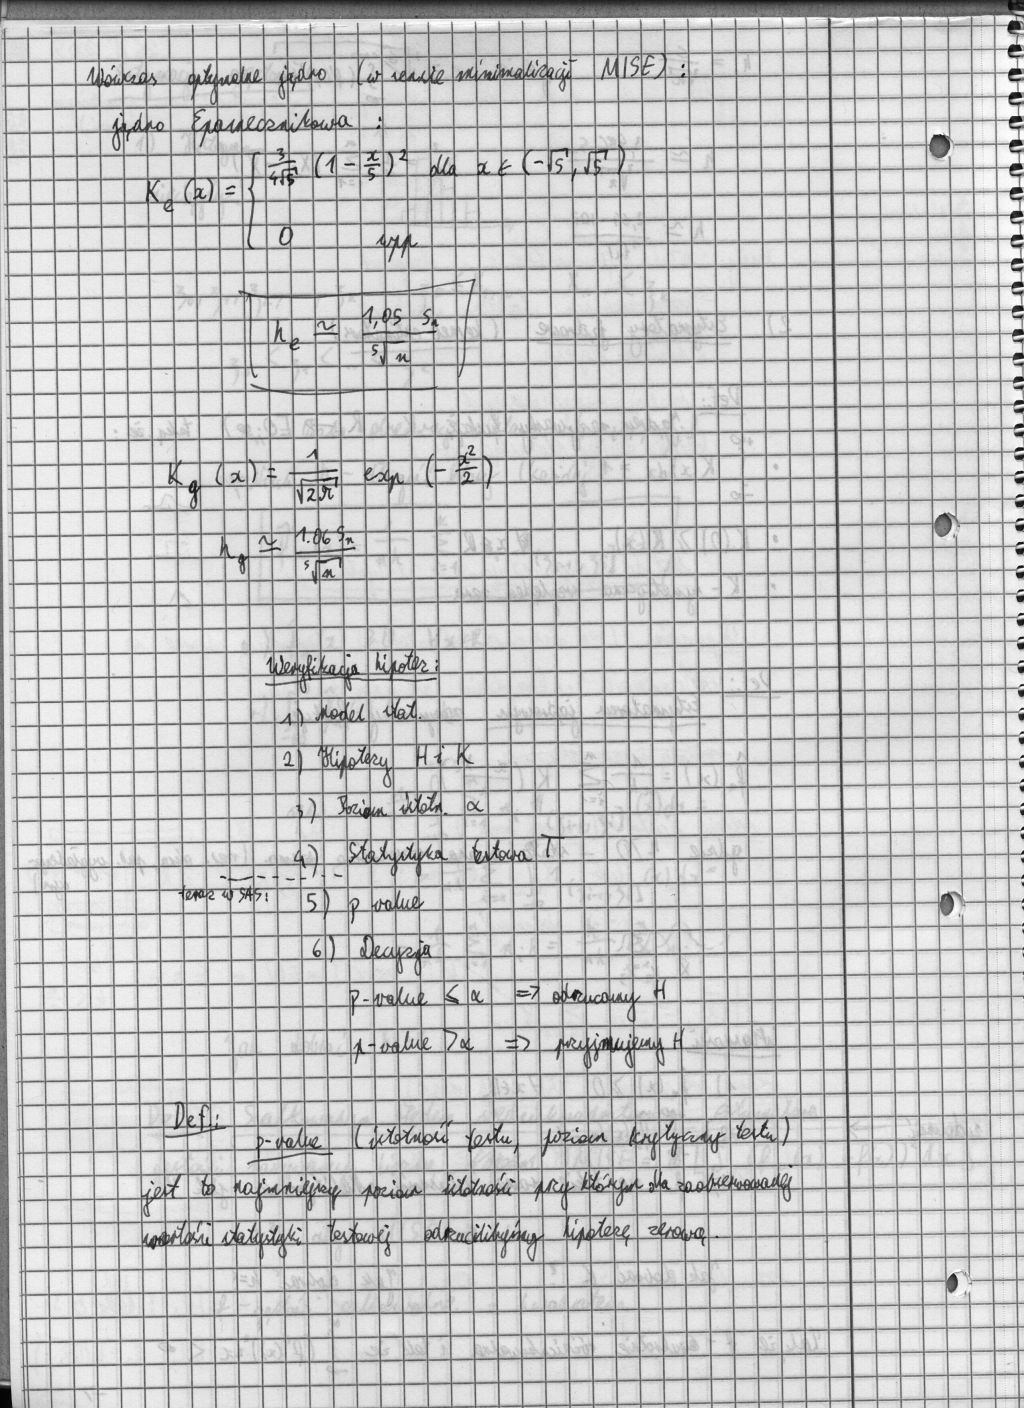 Wówczas optymalne jądro (w sensie minimalizacji MISE):
jądro Epanecznikowa:
K_e (x) = { 3/(4√5) (1 - x/5)^2 dla x ∈ (-√5, √5)
0 wpp
h_e ≃ 1,05 S_n / ⁵√n
K_g (x) = 1/√2π exp (- x^2/2)
h_g ≃ 1.06 S_n / ⁵√n
Weryfikacja hipotez:
1) Model stat.
2) Hipotezy H i K
3) Poziom istotn. α
4) Statystyka testowa T
teraz w SAS:
5) p value
6) Decyzja
p-value ≤ α => odrzucamy H
p-value > α => przyjmujemy H
Def.:
p-value (istotność testu, poziom krytyczny testu)
jest to najmniejszy poziom istotności przy którym dla zaobserwowanej
wartości statystyki testowej odrzucilibyśmy hipotezę zerową.